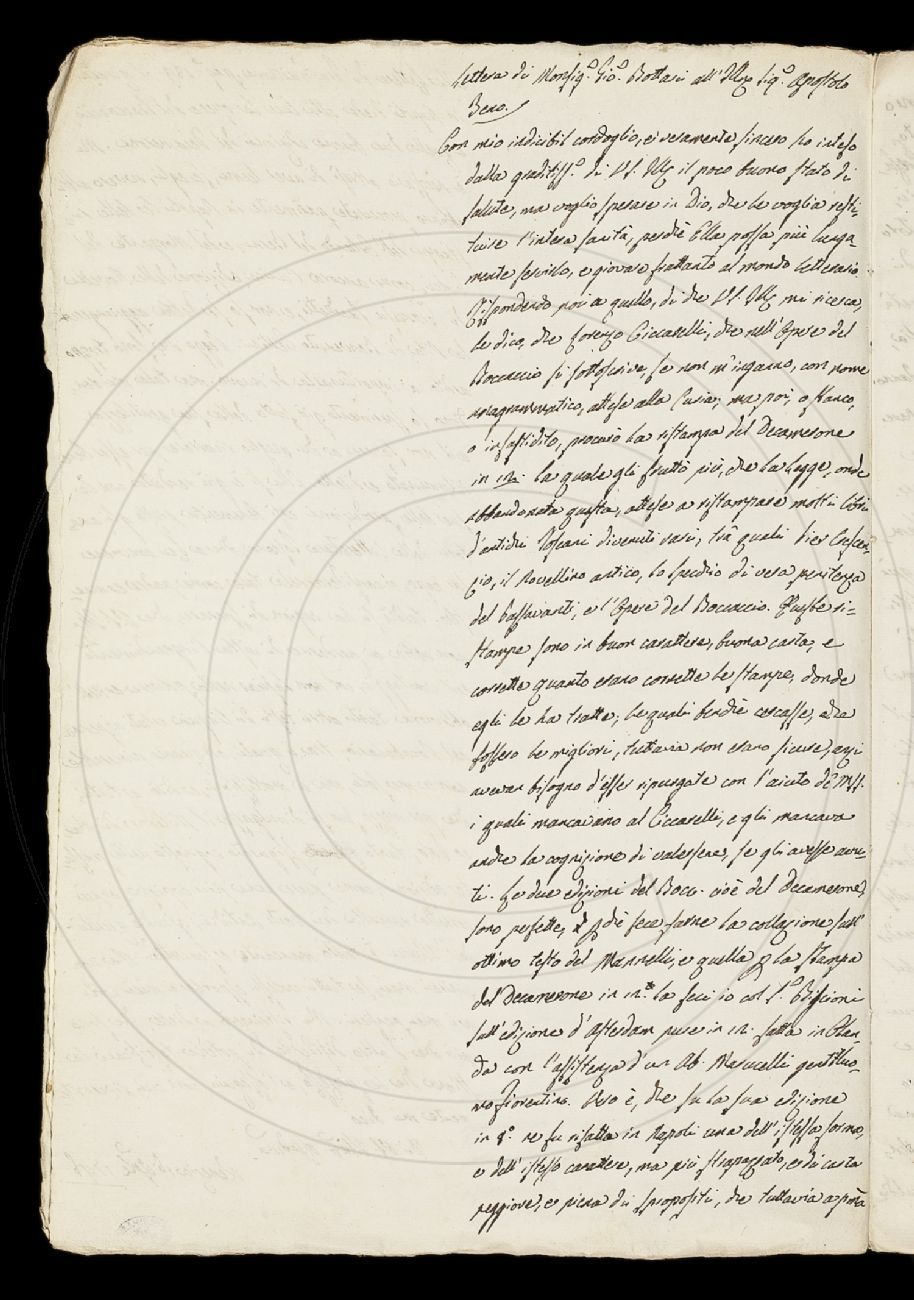 Lettera di Monsig.r Gio. Bottari all'Illmo Sig.r Apostolo
Zeno.
Con mio indicibil cordoglio, e veramente sincero ho inteso
dalla graditiss.a di V.S. Illma il poco buono stato di
salute, ma voglio sperare in Dio, che le voglia resti-
tuire l'intera sanità, perchè Ella possa più lunga-
mente servirlo, e giovare frattanto al mondo letterario.
Rispondendo poi a quello, di che V.S. Illma mi ricerca,
le dico, che Lorenzo Ciccarelli, che nell'Opere del
Boccaccio si sottoscrive, se non m'inganno, con nome
anagrammatico, attese alla Curia, ma poi, o stanco,
o infastidito, procurò la ristampa del Decamerone
in 12. la quale gli fruttò più, che la Legge, onde
abbandonata questa, attese a ristampare molti libri
d'antichi Toscani divenuti rari, trà quali Pier Crescen-
zio, il Novellino antico, lo Specchio di vera penitenza
del Passavanti, e l'Opere del Boccaccio. Queste ri-
stampe sono in buon carattere, buona carta, e
corrette quanto erano corrette le stampe, donde
egli le ha tratte; le quali benchè cercasse, che
fossero le migliori, tuttavia non erano sicure, anzi
avevan bisogno d'esser ripurgate con l'aiuto de MSS.
i quali mancavano al Ciccarelli, e gli mancava
anche la cognizione di valersene, se gli avesse avu-
ti. Le due edizioni del Bocc. cioè del Decamerone,
sono perfette, perchè fece farne la collazione sull'
ottimo testo del Mannelli, e quella per la stampa
del Decamerone in 12. la feci io col S.r Biscioni
sull'edizione d'Asterdam pure in 12. fatta in Olan-
da con l'assistenza d'un Ab. Marucelli gentiluo-
mo Fiorentino. Vero è, che su la sua edizione
in 8.o ne fu rifatta in Napoli una dell'istessa forma,
e dell'istesso carattere, ma più strapazzato, e di carta
peggiore, e piena di spropositi, che tuttavia a porla